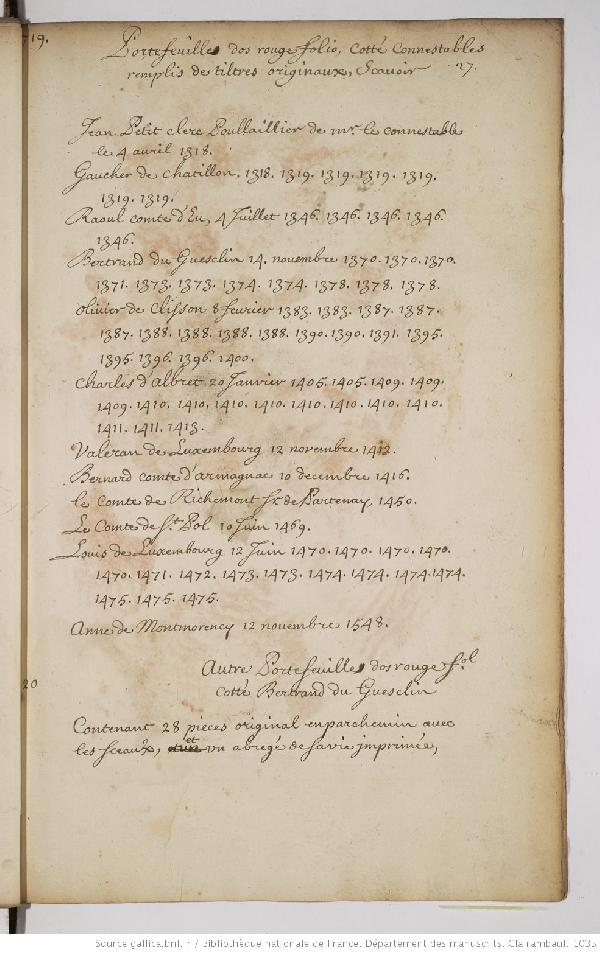 719.
Portefeuille dos rouge folio, cotté Connestables
remplis de tiltres originaux, Scavoir 27.
Jean Petit clerc Poullaillier de mr. le connestable
le 4 avril 1318.
Gaucher de Chatillon, 1318. 1319. 1319. 1319. 1319.
1319. 1319.
Raoul comte d'Eu, 4 Juillet 1346. 1346. 1346. 1346.
1346.
Bertrand du Guesclin 14. novembre 1370. 1370. 1370.
1371. 1373. 1373. 1374. 1374. 1378. 1378. 1378.
olivier de Clisson 8 fevrier 1383. 1383. 1387. 1387.
1387. 1388. 1388. 1388. 1388. 1390. 1390. 1391. 1395.
1395. 1396. 1396. 1400.
Charles d'albret 20 Janvier 1405. 1405. 1409. 1409.
1409. 1410. 1410. 1410. 1410. 1410. 1410. 1410. 1410.
1411. 1411. 1413.
Valeran de Luxembourg 12 novembre 1412.
Bernard comte d'armagnac 10 decembre 1416.
le Comte de Richemont Sr. de Partenay 1450.
Le Comte de St. Pol 10 Juin 1469.
Louis de Luxembourg 12 Juin 1470. 1470. 1470. 1470.
1470. 1471. 1472. 1473. 1473. 1474. 1474. 1474. 1474.
1475. 1475. 1475.
Anne de Montmorency 12 novembre 1548.
20
Autre Portefeuille dos rouge fol
cotté Bertrand du Guesclin
Contenant 28 pieces original en parchemin avec
les sceaux, et un abregé de sa vie imprimée,
Source gallica.bnf.fr / Bibliothèque nationale de France. Département des manuscrits. Clairambault 1035